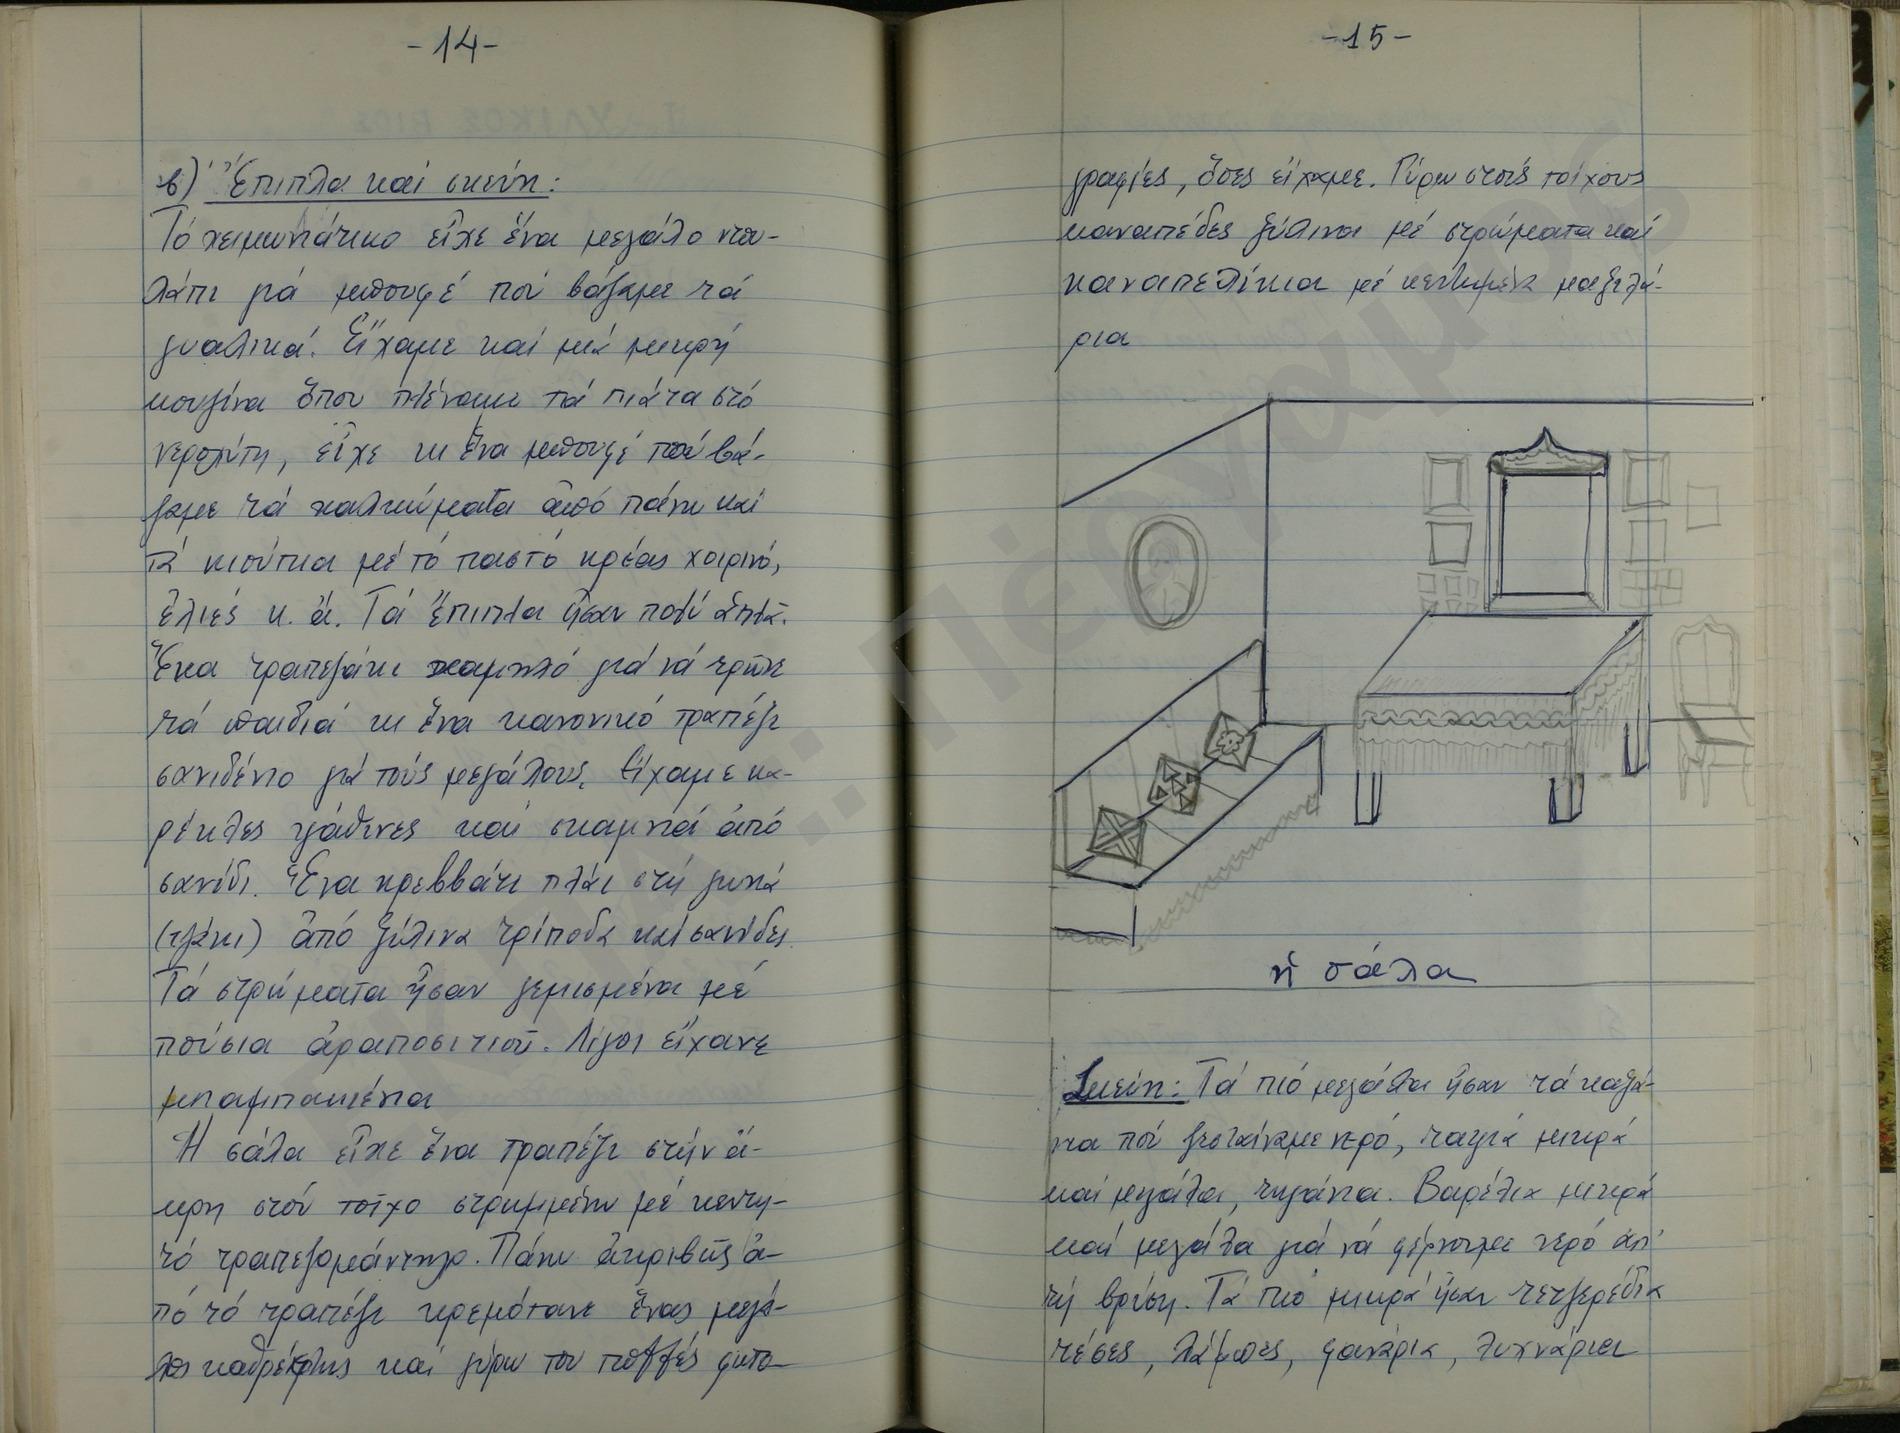 -14-
β) Ἔπιπλα καί σκεύη:
Τό χειμωνιάτικο εἶχε ἕνα μεγάλο ντου-
λάπι γιά μπουφέ πού βάζαμε τά
γυαλικά. Εἴχαμε καί μιά μικρή
κουζίνα ὅπου πλέναμε τά πιάτα στό
νεροχύτη, εἶχε κι ἕνα μπουφέ πού βά-
ζαμε τά χαλκώματα ἀπό πάνω καί
τά κιούπια μέ τό παστό κρέας χοιρινό,
ἐλιές κ. ἄ. Τά ἔπιπλα ἦσαν πολύ ἁπλᾶ.
Ἕνα τραπεζάκι χαμηλό γιά νά τρῶνε
τά παιδιά κι ἕνα κανονικό τραπέζι
σανιδένιο γιά τούς μεγάλους. Εἴχαμε κα-
ρέκλες ψάθινες καί σκαμνιά ἀπό
σανίδι. Ἕνα κρεββάτι πλάι στή γωνιά
(τζάκι) ἀπό ξύλινα τρίποδα καί σανίδες.
Τά στρώματα ἦσαν γεμισμένα μέ
πούσια ἀραποσιτιοῦ. Λίγοι εἴχανε
μπαμπακένια
Ἡ σάλα εἶχε ἕνα τραπέζι στήν ἄ-
κρη στόν τοῖχο στρωμμένο μέ κεντη-
τό τραπεζομάντηλο. Πάνω ἀκριβῶς ἀ-
πό τό τραπέζι κρεμότανε ἕνας μεγά-
λος καθρέφτης καί γύρω του πολλές φωτο-
-15-
γραφίες, ὅσες εἴχαμε. Γύρω στούς τοίχους
καναπέδες ξύλινοι μέ στρώματα καί
καναπελίκια μέ κεντημένα μαξιλά-
ρια
ἡ σάλα
Σκεύη: Τά πιό μεγάλα ἦσαν τά καζά-
νια πού ζεσταίναμε νερό, ταψιά μικρά
καί μεγάλα, τηγάνια. Βαρέλια μικρά
καί μεγάλα γιά νά φέρνουμε νερό ἀπ'
τή βρύση. Τά πιό μικρά ἦσαν τετζερέδια
τέσες, λάμπες, φανάρια, λυχνάρια